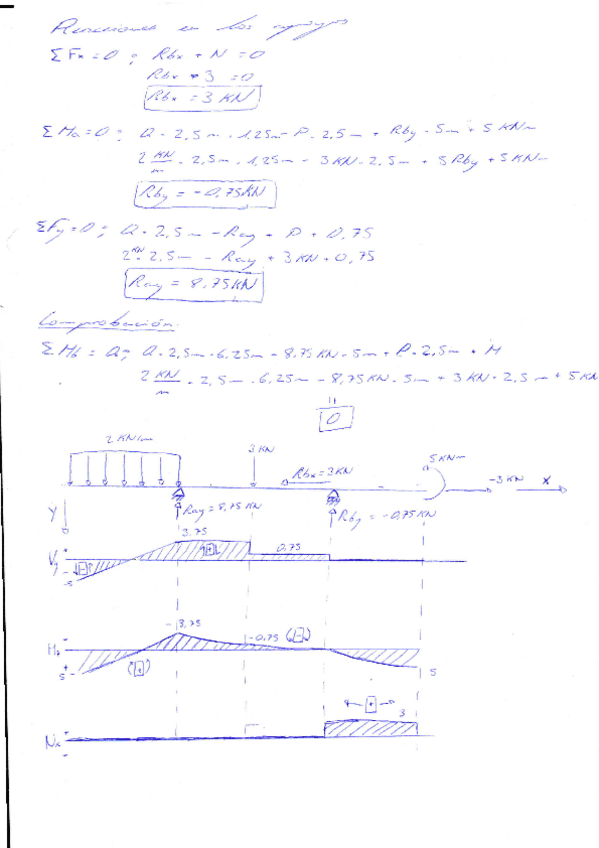 Reacciones en los apoyos
ΣFx=0 ; Rbx + N = 0
Rbx + 3 = 0
Rbx = 3 KN
ΣMa=0 ; Q · 2,5m · 1,25m - P · 2,5m + Rby · 5m + 5 KNm
2 KN/m · 2,5m · 1,25m - 3KN · 2,5m + 5 Rby + 5 KNm
Rby = -0,75KN
ΣFy=0 ; Q · 2,5m - Ray + P + 0,75
2 KN · 2,5m - Ray + 3KN + 0,75
Ray = 8,75KN
Comprobación:
ΣMb = 0 ; Q · 2,5m · 6,25m - 8,75KN · 5m + P · 2,5m + M
2 KN/m · 2,5m · 6,25m - 8,75KN · 5m + 3KN · 2,5m + 5KN
"
0
2 KN/m
3KN
Rbx=3KN
5KNm
-3 KN
X
Y
Ray = 8,75KN
Rby = -0,75KN
3.75
0,75
Vy
+
-
-5
-8,75
-0,75
-
+
5
5
+
3
Nx
-